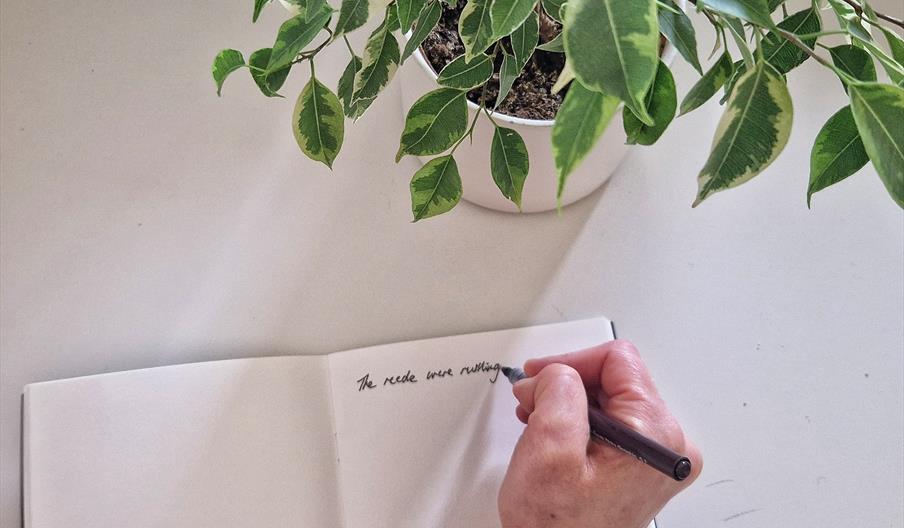 The reeds were rustling